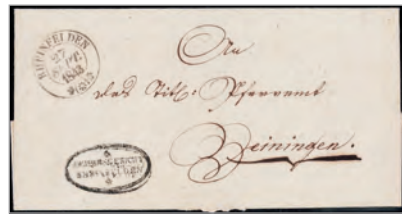 RHEINFELDEN
27
SEPT.
1843
An
das Titl. Pfarramt
Beiningen.
BEZIRKSGERICHT
RHEINFELDEN